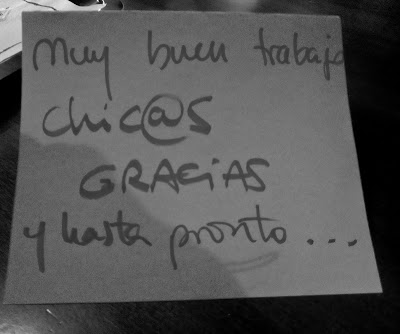 Muy buen trabajo
chic@s
GRACiAS
y hasta pronto ...